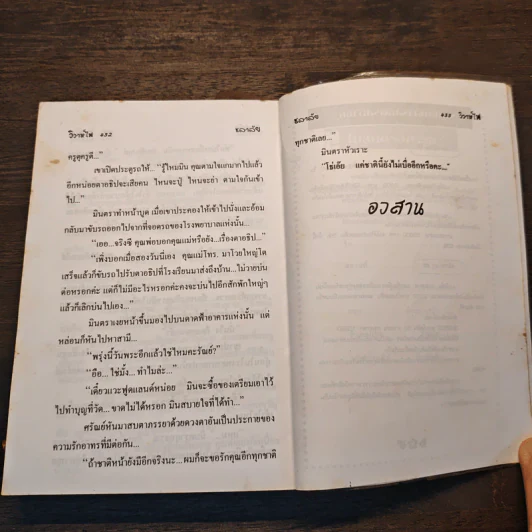 วิวาห์ไฟ ๔๓๒ ชลาลัย
ครูดุครูดี...”
เขาเปิดประตูรถให้... “รู้ไหมมิน คุณตามใจแกมากไปแล้ว
อีกหน่อยดาอธิปจะเสียคน ไหนจะปู่ ไหนจะย่า ตามใจกันเข้า
ไป...”
มินตราทำหน้าบูด เมื่อเขาประคองให้เข้าไปนั่งและอ้อม
กลับมาขับรถออกไปจากที่จอดรถของโรงพยาบาลแห่งนั้น...
“เออ...จริงซี คุณพ่อบอกคุณแม่หรือยัง...เรื่องดาอธิป...”
“เพิ่งบอกเมื่อสองวันนี้เอง คุณแม่โทร. มาโวยใหญ่โต
เสร็จแล้วก็ขับรถไปรับดาอธิปที่โรงเรียนมาส่งถึงบ้าน...ไม่วายบ่น
ต่อหรอกค่ะ แต่ก็ไม่มีอะไรหรอกค่ะคงจะบ่นไปอีกสักพักใหญ่ๆ
แล้วก็เลิกบ่นไปเอง...”
มินตราเงยหน้าขึ้นมองไปบนดาดฟ้าอาคารแห่งนั้น แต่
หล่อนก็หันไปหาสามี...
“พรุ่งนี้วันพระอีกแล้วใช่ไหมคะรัณย์?”
“อือ... ใช่มั้ง... ทำไมล่ะ...”
“เดี๋ยวแวะฟูดแลนด์หน่อย มินจะซื้อของเตรียมเอาไว้
ไปทำบุญที่วัด...ขาดไม่ได้หรอก มินสบายใจที่ได้ทำ...”
ศรัณย์หันมาสบตาภรรยาด้วยดวงตาอันเป็นประกายของ
ความรักอาทรที่มีต่อกัน...
“ถ้าชาติหน้ายังมีอีกจริงนะ...ผมก็จะขอรักคุณอีกทุกชาติ
ชลาลัย ๔๓๓ วิวาห์ไฟ
ทุกชาติเลย...”
มินตราหัวเราะ
“โธ่เอ๊ย แค่ชาตินี้ยังไม่เบื่ออีกหรือคะ...”
อวสาน